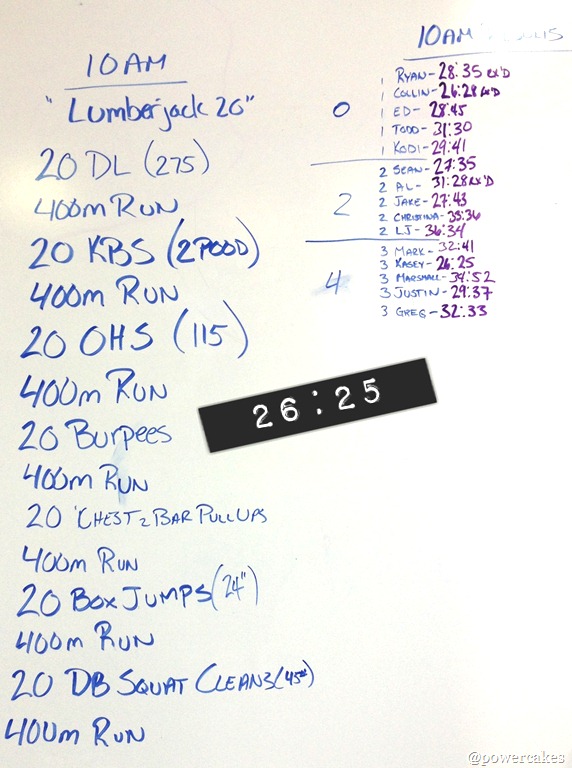 10AM
"Lumberjack 20"
20 DL (275)
400m RUN
20 KBS (2POOD)
400m RUN
20 OHS (115)
400m RUN
20 Burpees
400m RUN
20 CHEST 2 BAR PULLUPS
400m RUN
20 BOX JUMPS (24")
400m RUN
20 DB SQUAT CLEANS (45#)
400m RUN
10AM
0
1 RYAN- 28:35 RX'D
1 COLLIN- 26:28 RX'D
1 ED- 28:45
1 TODD- 31:30
1 KODI- 29:41
2
2 SEAN- 27:35
2 AL- 31:28 RX'D
2 JAKE- 27:43
2 CHRISTINA- 35:36
2 LJ- 36:34
4
3 MARK- 32:41
3 KASEY- 26:25
3 MARSHALL- 34:52
3 JUSTIN- 29:37
3 GREG- 32:33
26:25
@powercakes